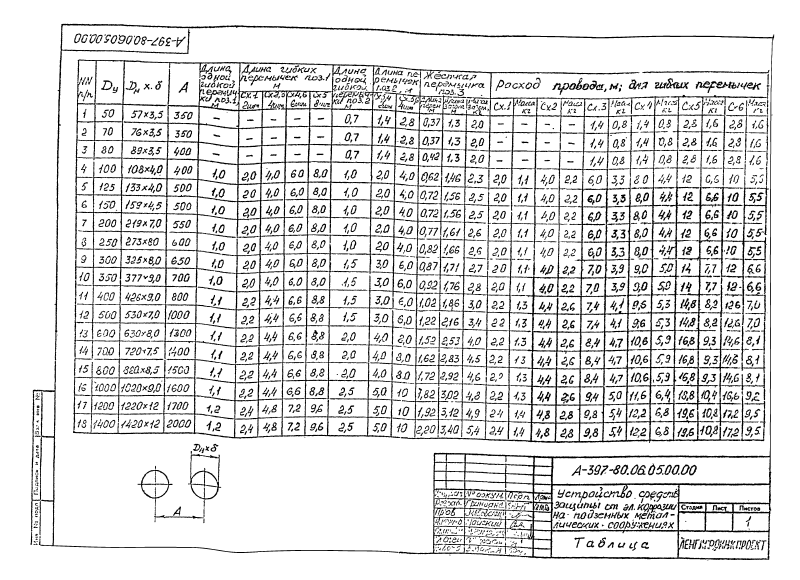 А-397-80.06.05.00.00
NN п/п | Dу | Dн х δ | А | Длина одной гибкой перемычки поз.1, м | Длина гибких перемычек поз.1 м | Длина одной гибкой перемычки поз.2 | Длина перемычек поз.2 м | Жёсткая перемычка поз.3 | Расход провода, м; для гибких перемычек
Сх.1 | Сх.2,3 | Сх.4 | Сх.5 | Сх.1 | Масса кг | Сх2 | Масса кг | Сх.3 | Масса кг | Сх4 | Масса кг | Сх5 | Масса кг | С-6 | Масса кг
1 50 57×3,5 350 – – – – – 0,7 1,4 2,8 0,37 1,3 2,0 – – – – 1,4 0,8 1,4 0,8 2,8 1,6 2,8 1,6
2 70 76×3,5 350 – – – – – 0,7 1,4 2,8 0,37 1,3 2,0 – – – – 1,4 0,8 1,4 0,8 2,8 1,6 2,8 1,6
3 80 89×3,5 400 – – – – – 0,7 1,4 2,8 0,42 1,3 2,0 – – – – 1,4 0,8 1,4 0,8 2,8 1,6 2,8 1,6
4 100 108×4,0 400 1,0 2,0 4,0 6,0 8,0 1,0 2,0 4,0 0,62 1,46 2,3 2,0 1,1 4,0 2,2 6,0 3,3 8,0 4,4 12 6,6 10 5,5
5 125 133×4,0 500 1,0 2,0 4,0 6,0 8,0 1,0 2,0 4,0 0,72 1,56 2,5 2,0 1,1 4,0 2,2 6,0 3,3 8,0 4,4 12 6,6 10 5,5
6 150 159×4,5 500 1,0 2,0 4,0 6,0 8,0 1,0 2,0 4,0 0,72 1,56 2,5 2,0 1,1 4,0 2,2 6,0 3,3 8,0 4,4 12 6,6 10 5,5
7 200 219×7,0 550 1,0 2,0 4,0 6,0 8,0 1,0 2,0 4,0 0,77 1,61 2,6 2,0 1,1 4,0 2,2 6,0 3,3 8,0 4,4 12 6,6 10 5,5
8 250 273×80 600 1,0 2,0 4,0 6,0 8,0 1,0 2,0 4,0 0,82 1,66 2,6 2,0 1,1 4,0 2,2 6,0 3,3 8,0 4,4 12 6,6 10 5,5
9 300 325×8,0 650 1,0 2,0 4,0 6,0 8,0 1,5 3,0 6,0 0,87 1,71 2,7 2,0 1,1 4,0 2,2 7,0 3,9 9,0 5,0 14 7,7 12 6,6
10 350 377×9,0 700 1,0 2,0 4,0 6,0 8,0 1,5 3,0 6,0 0,92 1,76 2,8 2,0 1,1 4,0 2,2 7,0 3,9 9,0 5,0 14 7,7 12 6,6
11 400 426×9,0 800 1,1 2,2 4,4 6,6 8,8 1,5 3,0 6,0 1,02 1,86 3,0 2,2 1,3 4,4 2,6 7,4 4,1 9,6 5,3 14,8 8,2 12,6 7,0
12 500 530×7,0 1000 1,1 2,2 4,4 6,6 8,8 1,5 3,0 6,0 1,22 2,16 3,4 2,2 1,3 4,4 2,6 7,4 4,1 9,6 5,3 14,8 8,2 12,6 7,0
13 600 630×8,0 1300 1,1 2,2 4,4 6,6 8,8 2,0 4,0 2,0 1,52 2,53 4,0 2,2 1,3 4,4 2,6 8,4 4,7 10,6 5,9 16,8 9,3 14,6 8,1
14 700 720×7,5 1400 1,1 2,2 4,4 6,6 8,8 2,0 4,0 8,0 1,62 2,83 4,5 2,2 1,3 4,4 2,6 8,4 4,7 10,6 5,9 16,8 9,3 14,6 8,1
15 800 820×8,5 1500 1,1 2,2 4,4 6,6 8,8 2,0 4,0 8,0 1,72 2,92 4,6 2,2 1,3 4,4 2,6 8,4 4,7 10,6 5,9 16,8 9,3 14,6 8,1
16 1000 1020×9,0 1600 1,1 2,2 4,4 6,6 8,8 2,5 5,0 10 1,82 3,02 4,8 2,2 1,3 4,4 2,6 9,4 5,0 11,6 6,4 18,8 10,4 16,6 9,2
17 1200 1220×12 1700 1,2 2,4 4,8 7,2 9,6 2,5 5,0 10 1,92 3,12 4,9 2,4 1,4 4,8 2,8 9,8 5,4 12,2 6,8 19,6 10,8 17,2 9,5
18 1400 1420×12 2000 1,2 2,4 4,8 7,2 9,6 2,5 5,0 10 2,20 3,40 5,4 2,4 1,4 4,8 2,8 9,8 5,4 12,2 6,8 19,6 10,8 17,2 9,5
Dн×δ
А
А-397-80.06.05.00.00
Устройство средств
защиты от эл. коррозии
на подземных метал-
лических сооружениях
Таблица
Стадия Лист Листов
1
Инв. № подл. Подпись и дата